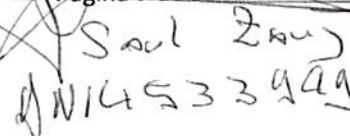 Saul Zang
DNI 4533949